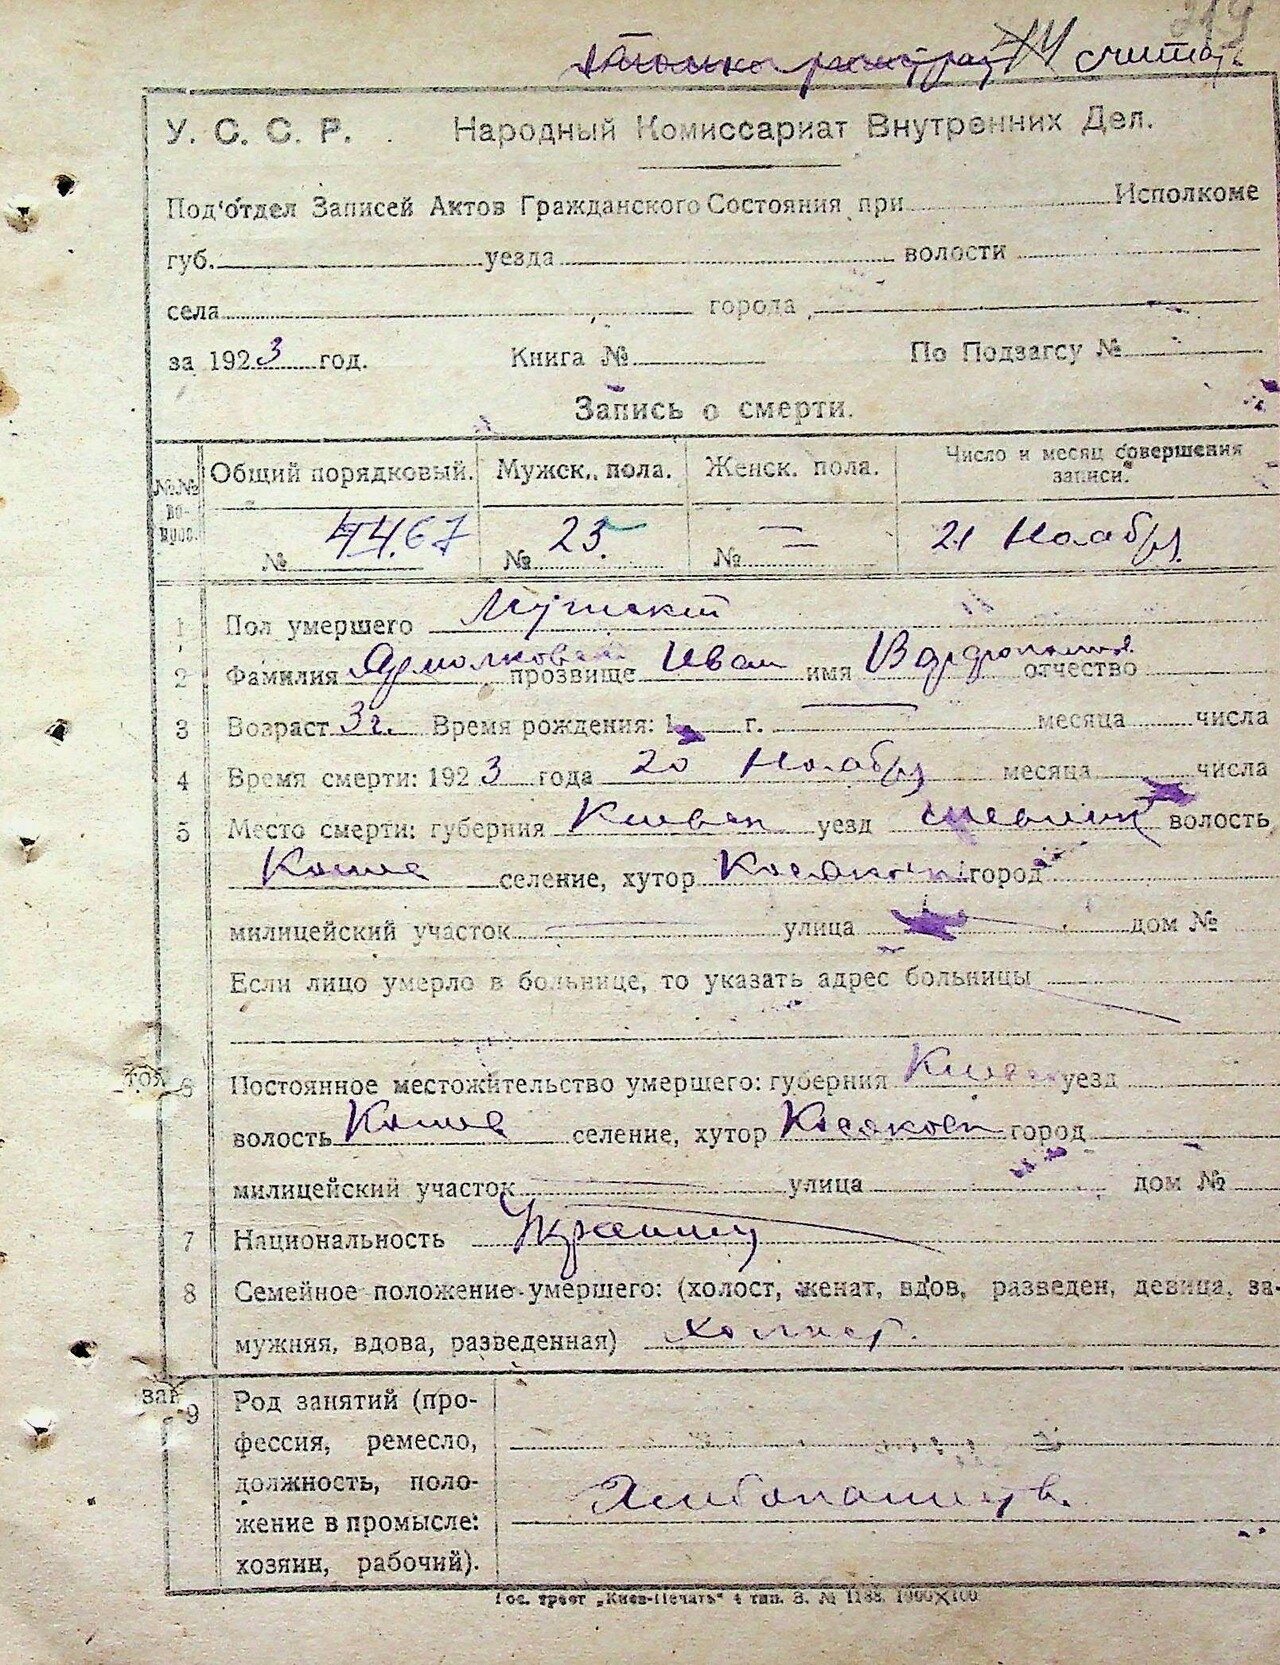 219
считать
У. С. С. Р. Народный Комиссариат Внутренних Дел.
Под'отдел Записей Актов Гражданского Состояния при Исполкоме
губ. уезда волости
села города
за 1923 год. Книга № По Подзагсу №
Запись о смерти.
№№ во-прос. Общий порядковый. Мужск. пола. Женск. пола. Число и месяц совершения записи.
№ № 23 № = 21 Ноабря
1 Пол умершего Мужской
2 Фамилия прозвище Иван имя отчество
3 Возраст 3 г. Время рождения: 1 г. — месяца числа
4 Время смерти: 1923 года 20 Ноабря месяца числа
5 Место смерти: губерния Киевск уезд волость
селение, хутор город
милицейский участок — улица дом №
Если лицо умерло в больнице, то указать адрес больницы
6 Постоянное местожительство умершего: губерния Киевск уезд
волость селение, хутор город
милицейский участок — улица дом №
7 Национальность
8 Семейное положение умершего: (холост, женат, вдов, разведен, девица, за-
мужняя, вдова, разведенная) холост.
9 Род занятий (про-
фессия, ремесло,
должность, поло-
жение в промысле:
хозяин, рабочий).
Гос. трест „Киев-Печать“ 4 тип. З. № 1188. 1000×100